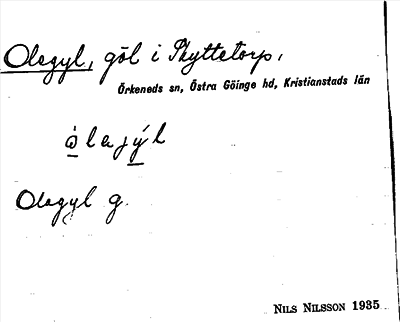 Olagyl, göl i Skyttetorp,
Örkeneds sn, Östra Göinge hd, Kristianstads län
òlajýl
Olagyl g.
NILS NILSSON 1935